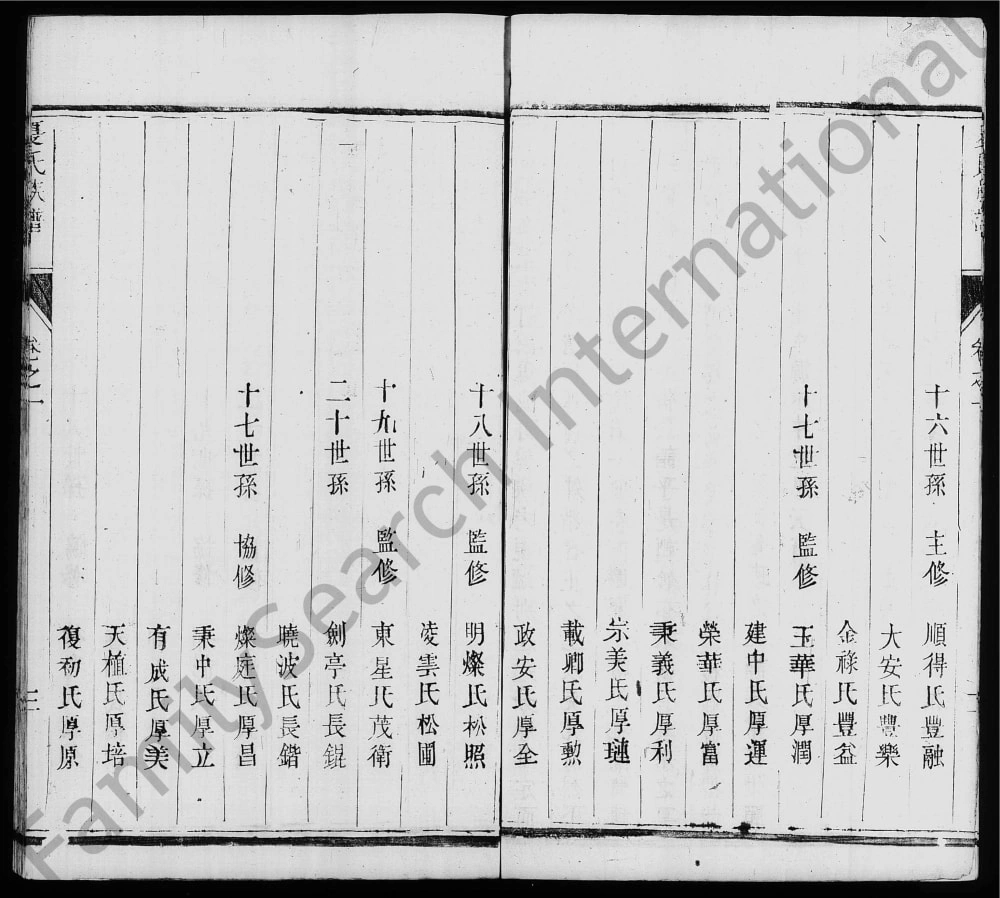 十六世孫 主修 順得氏豐融
大安氏豐樂
金祿氏豐益
十七世孫 監修 玉華氏厚潤
建中氏厚運
榮華氏厚富
秉義氏厚利
宗美氏厚璉
載卿氏厚勲
政安氏厚全
十八世孫 監修 明燦氏松照
凌雲氏松圃
十九世孫 監修 東星氏茂衛
二十世孫 劍亭氏長錕
曉波氏長鍇
十七世孫 協修 燦庭氏厚昌
秉中氏厚立
有成氏厚美
天植氏厚培
復初氏厚原
氏族譜
卷之一
三
FamilySearch International